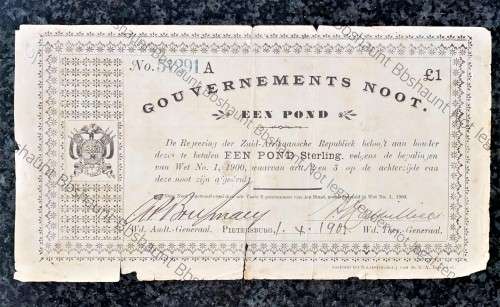 No. 51291 A
£1
GOUVERNEMENTS NOOT.
EEN POND
De Regeering der Zuid-Afrikaansche Republiek belooft aan houder
dezes te betalen EEN POND Sterling, volgens de bepalingen
van Wet No. 1, 1900, waarvan artt. en 5 op de achterzijde van
deze noot zijn afgedrukt.
Wet No. 1, 1900.
Wd. Audt.-Generaal. PIETERSBURG, 1.4.1901 Wd. Thes.-Generaal.
Bbshaunt